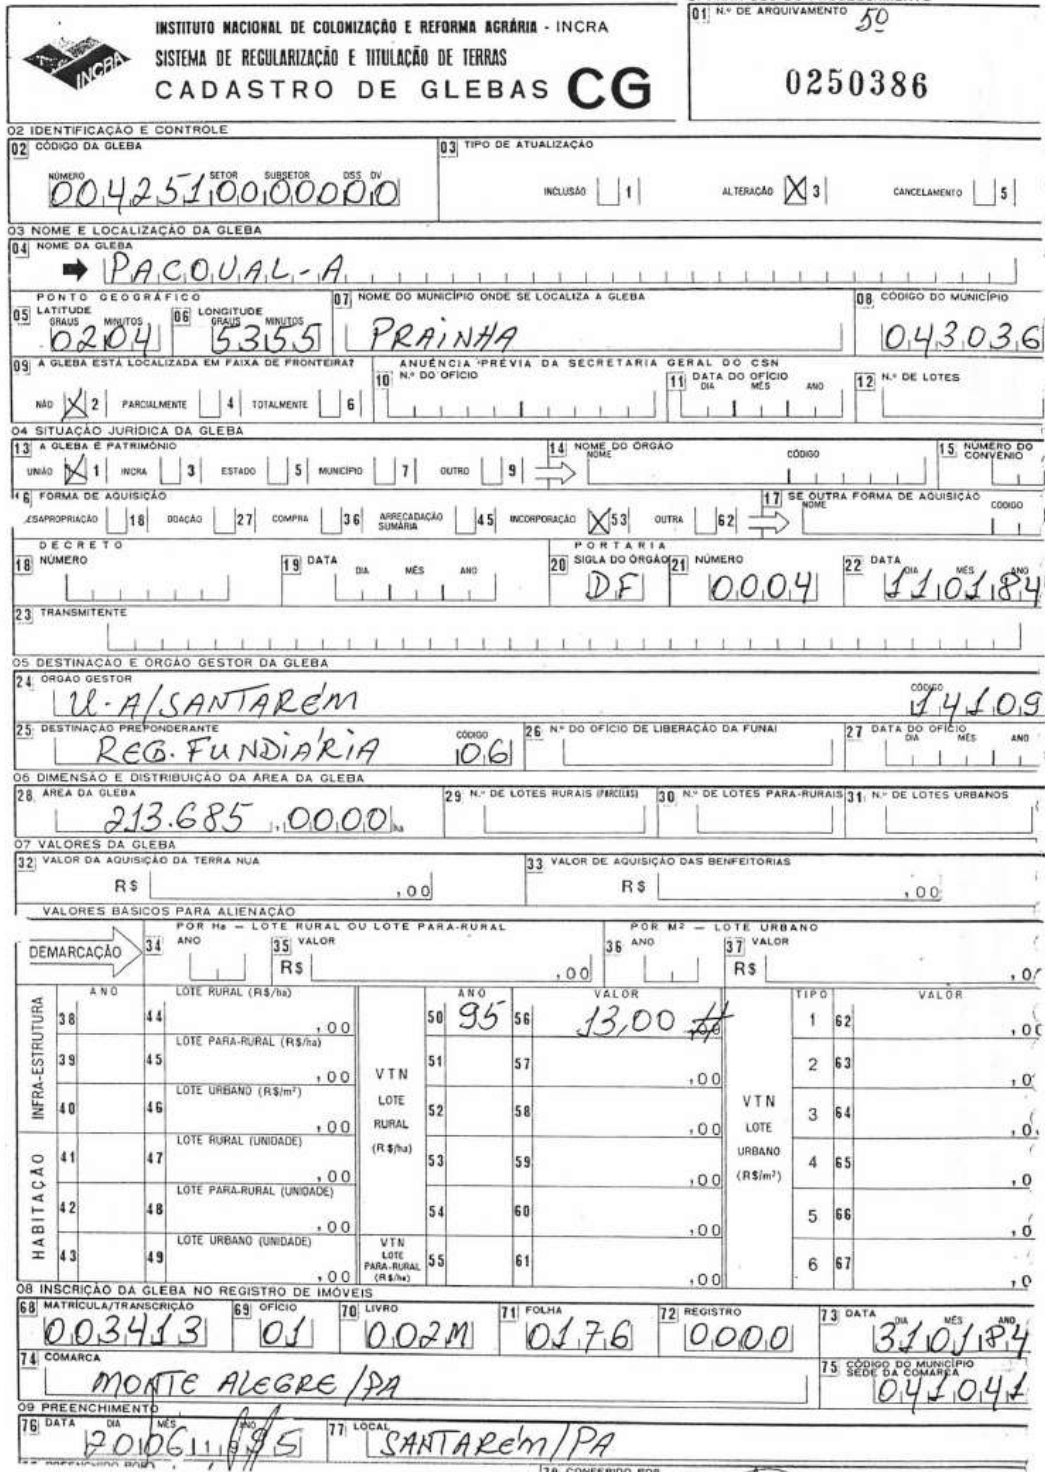 INSTITUTO NACIONAL DE COLONIZAÇÃO E REFORMA AGRÁRIA - INCRA
SISTEMA DE REGULARIZAÇÃO E TITULAÇÃO DE TERRAS
CADASTRO DE GLEBAS CG
INCRA
01 N.º DE ARQUIVAMENTO 50
0250386
02 IDENTIFICAÇÃO E CONTROLE
02 CÓDIGO DA GLEBA
NÚMERO SETOR SUBSETOR DSS DV
004251000000000
03 TIPO DE ATUALIZAÇÃO
INCLUSÃO 1 ALTERAÇÃO X 3 CANCELAMENTO 5
03 NOME E LOCALIZAÇÃO DA GLEBA
04 NOME DA GLEBA
PACOUAL-A
PONTO GEOGRÁFICO
05 LATITUDE GRAUS MINUTOS 0204
06 LONGITUDE GRAUS MINUTOS 5355
07 NOME DO MUNICÍPIO ONDE SE LOCALIZA A GLEBA
PRAINHA
08 CÓDIGO DO MUNICÍPIO
043036
09 A GLEBA ESTÁ LOCALIZADA EM FAIXA DE FRONTEIRA?
NÃO X 2 PARCIALMENTE 4 TOTALMENTE 6
ANUÊNCIA PRÉVIA DA SECRETARIA GERAL DO CSN
10 N.º DO OFÍCIO
11 DATA DO OFÍCIO DIA MÊS ANO
12 N.º DE LOTES
04 SITUAÇÃO JURÍDICA DA GLEBA
13 A GLEBA É PATRIMÔNIO
UNIÃO X 1 INCRA 3 ESTADO 5 MUNICÍPIO 7 OUTRO 9
14 NOME DO ÓRGÃO
NOME CÓDIGO
15 NÚMERO DO CONVÊNIO
16 FORMA DE AQUISIÇÃO
ESAPROPRIAÇÃO 18 DOAÇÃO 27 COMPRA 36 ARRECADAÇÃO SUMÁRIA 45 INCORPORAÇÃO X 53 OUTRA 62
17 SE OUTRA FORMA DE AQUISIÇÃO
NOME CÓDIGO
DECRETO
18 NÚMERO
19 DATA DIA MÊS ANO
PORTARIA
20 SIGLA DO ÓRGÃO DF
21 NÚMERO 0004
22 DATA DIA MÊS ANO 110184
23 TRANSMITENTE
05 DESTINAÇÃO E ÓRGÃO GESTOR DA GLEBA
24 ÓRGÃO GESTOR
U-A/SANTARÉM
CÓDIGO 14109
25 DESTINAÇÃO PREPONDERANTE
REG. FUNDIÁRIA
CÓDIGO 06
26 N.º DO OFÍCIO DE LIBERAÇÃO DA FUNAI
27 DATA DO OFÍCIO DIA MÊS ANO
06 DIMENSÃO E DISTRIBUIÇÃO DA ÁREA DA GLEBA
28 ÁREA DA GLEBA
213.685,0000 ha
29 N.º DE LOTES RURAIS (PARCELAS)
30 N.º DE LOTES PARA-RURAIS
31 N.º DE LOTES URBANOS
07 VALORES DA GLEBA
32 VALOR DA AQUISIÇÃO DA TERRA NUA
R$ ,00
33 VALOR DE AQUISIÇÃO DAS BENFEITORIAS
R$ ,00
VALORES BÁSICOS PARA ALIENAÇÃO
DEMARCAÇÃO
POR Ha — LOTE RURAL OU LOTE PARA-RURAL
34 ANO
35 VALOR R$ ,00
POR M² — LOTE URBANO
36 ANO
37 VALOR R$ ,0
INFRA-ESTRUTURA
ANO
38 44 LOTE RURAL (R$/ha) ,00
39 45 LOTE PARA-RURAL (R$/ha) ,00
40 46 LOTE URBANO (R$/m²) ,00
HABITAÇÃO
41 47 LOTE RURAL (UNIDADE) ,00
42 48 LOTE PARA-RURAL (UNIDADE) ,00
43 49 LOTE URBANO (UNIDADE) ,00
VTN LOTE RURAL (R$/ha)
ANO VALOR
50 95 56 13,00
51 57 ,00
52 58 ,00
53 59 ,00
54 60 ,00
VTN LOTE PARA-RURAL (R$/ha)
55 61 ,00
VTN LOTE URBANO (R$/m²)
TIPO VALOR
1 62 ,00
2 63 ,0
3 64 ,0
4 65 ,0
5 66 ,0
6 67 ,0
08 INSCRIÇÃO DA GLEBA NO REGISTRO DE IMÓVEIS
68 MATRÍCULA/TRANSCRIÇÃO 003413
69 OFÍCIO 01
70 LIVRO 002M
71 FOLHA 0176
72 REGISTRO 0000
73 DATA DIA MÊS ANO 310184
74 COMARCA
MONTE ALEGRE/PA
75 CÓDIGO DO MUNICÍPIO SEDE DA COMARCA
041041
09 PREENCHIMENTO
76 DATA DIA MÊS ANO
77 LOCAL
SANTARÉM/PA